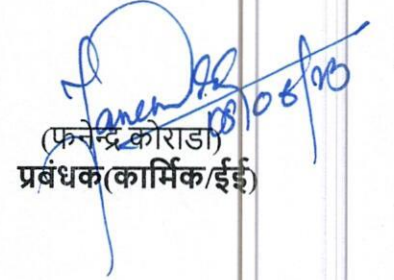 08/08/23
(फनेन्द्र कोराडा)
प्रबंधक(कार्मिक/ईई)